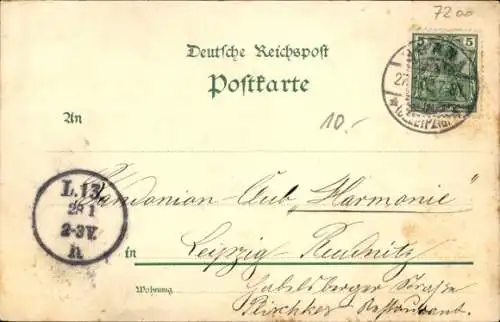 7200
5 5
Deutsche Reichspost
Postkarte
27.
(LEIPZIG)
An
10.-
Bandonion-Club "Harmonie"
L. 13
28 1
2-3V.
A
in Leipzig Reudnitz
Wohnung Gabelsberger Straße
Restaurant.